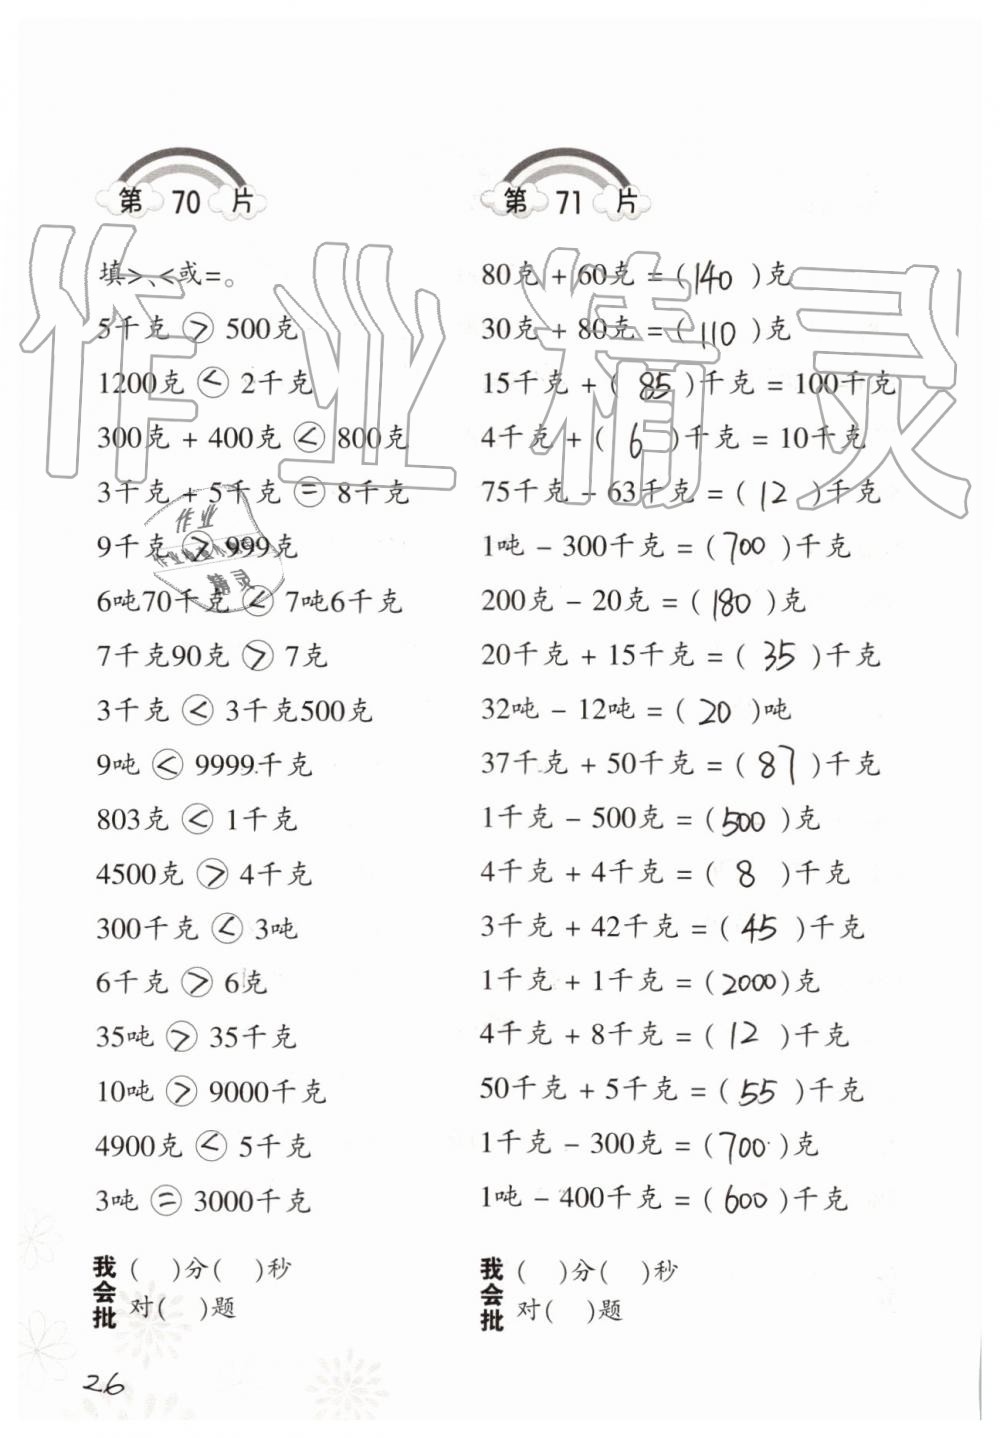 第 70 片
填>、<或=。
5千克 > 500克
1200克 < 2千克
300克 + 400克 < 800克
3千克 + 5千克 = 8千克
9千克 > 999克
6吨70千克 < 7吨6千克
7千克90克 > 7克
3千克 < 3千克500克
9吨 < 9999千克
803克 < 1千克
4500克 > 4千克
300千克 < 3吨
6千克 > 6克
35吨 > 35千克
10吨 > 9000千克
4900克 < 5千克
3吨 = 3000千克
我会批 ( )分( )秒
对( )题
第 71 片
80克 + 60克 = (140)克
30克 + 80克 = (110)克
15千克 + (85)千克 = 100千克
4千克 + (6)千克 = 10千克
75千克 - 63千克 = (12)千克
1吨 - 300千克 = (700)千克
200克 - 20克 = (180)克
20千克 + 15千克 = (35)千克
32吨 - 12吨 = (20)吨
37千克 + 50千克 = (87)千克
1千克 - 500克 = (500)克
4千克 + 4千克 = (8)千克
3千克 + 42千克 = (45)千克
1千克 + 1千克 = (2000)克
4千克 + 8千克 = (12)千克
50千克 + 5千克 = (55)千克
1千克 - 300克 = (700)克
1吨 - 400千克 = (600)千克
我会批 ( )分( )秒
对( )题
26
作业精灵
作业
精灵